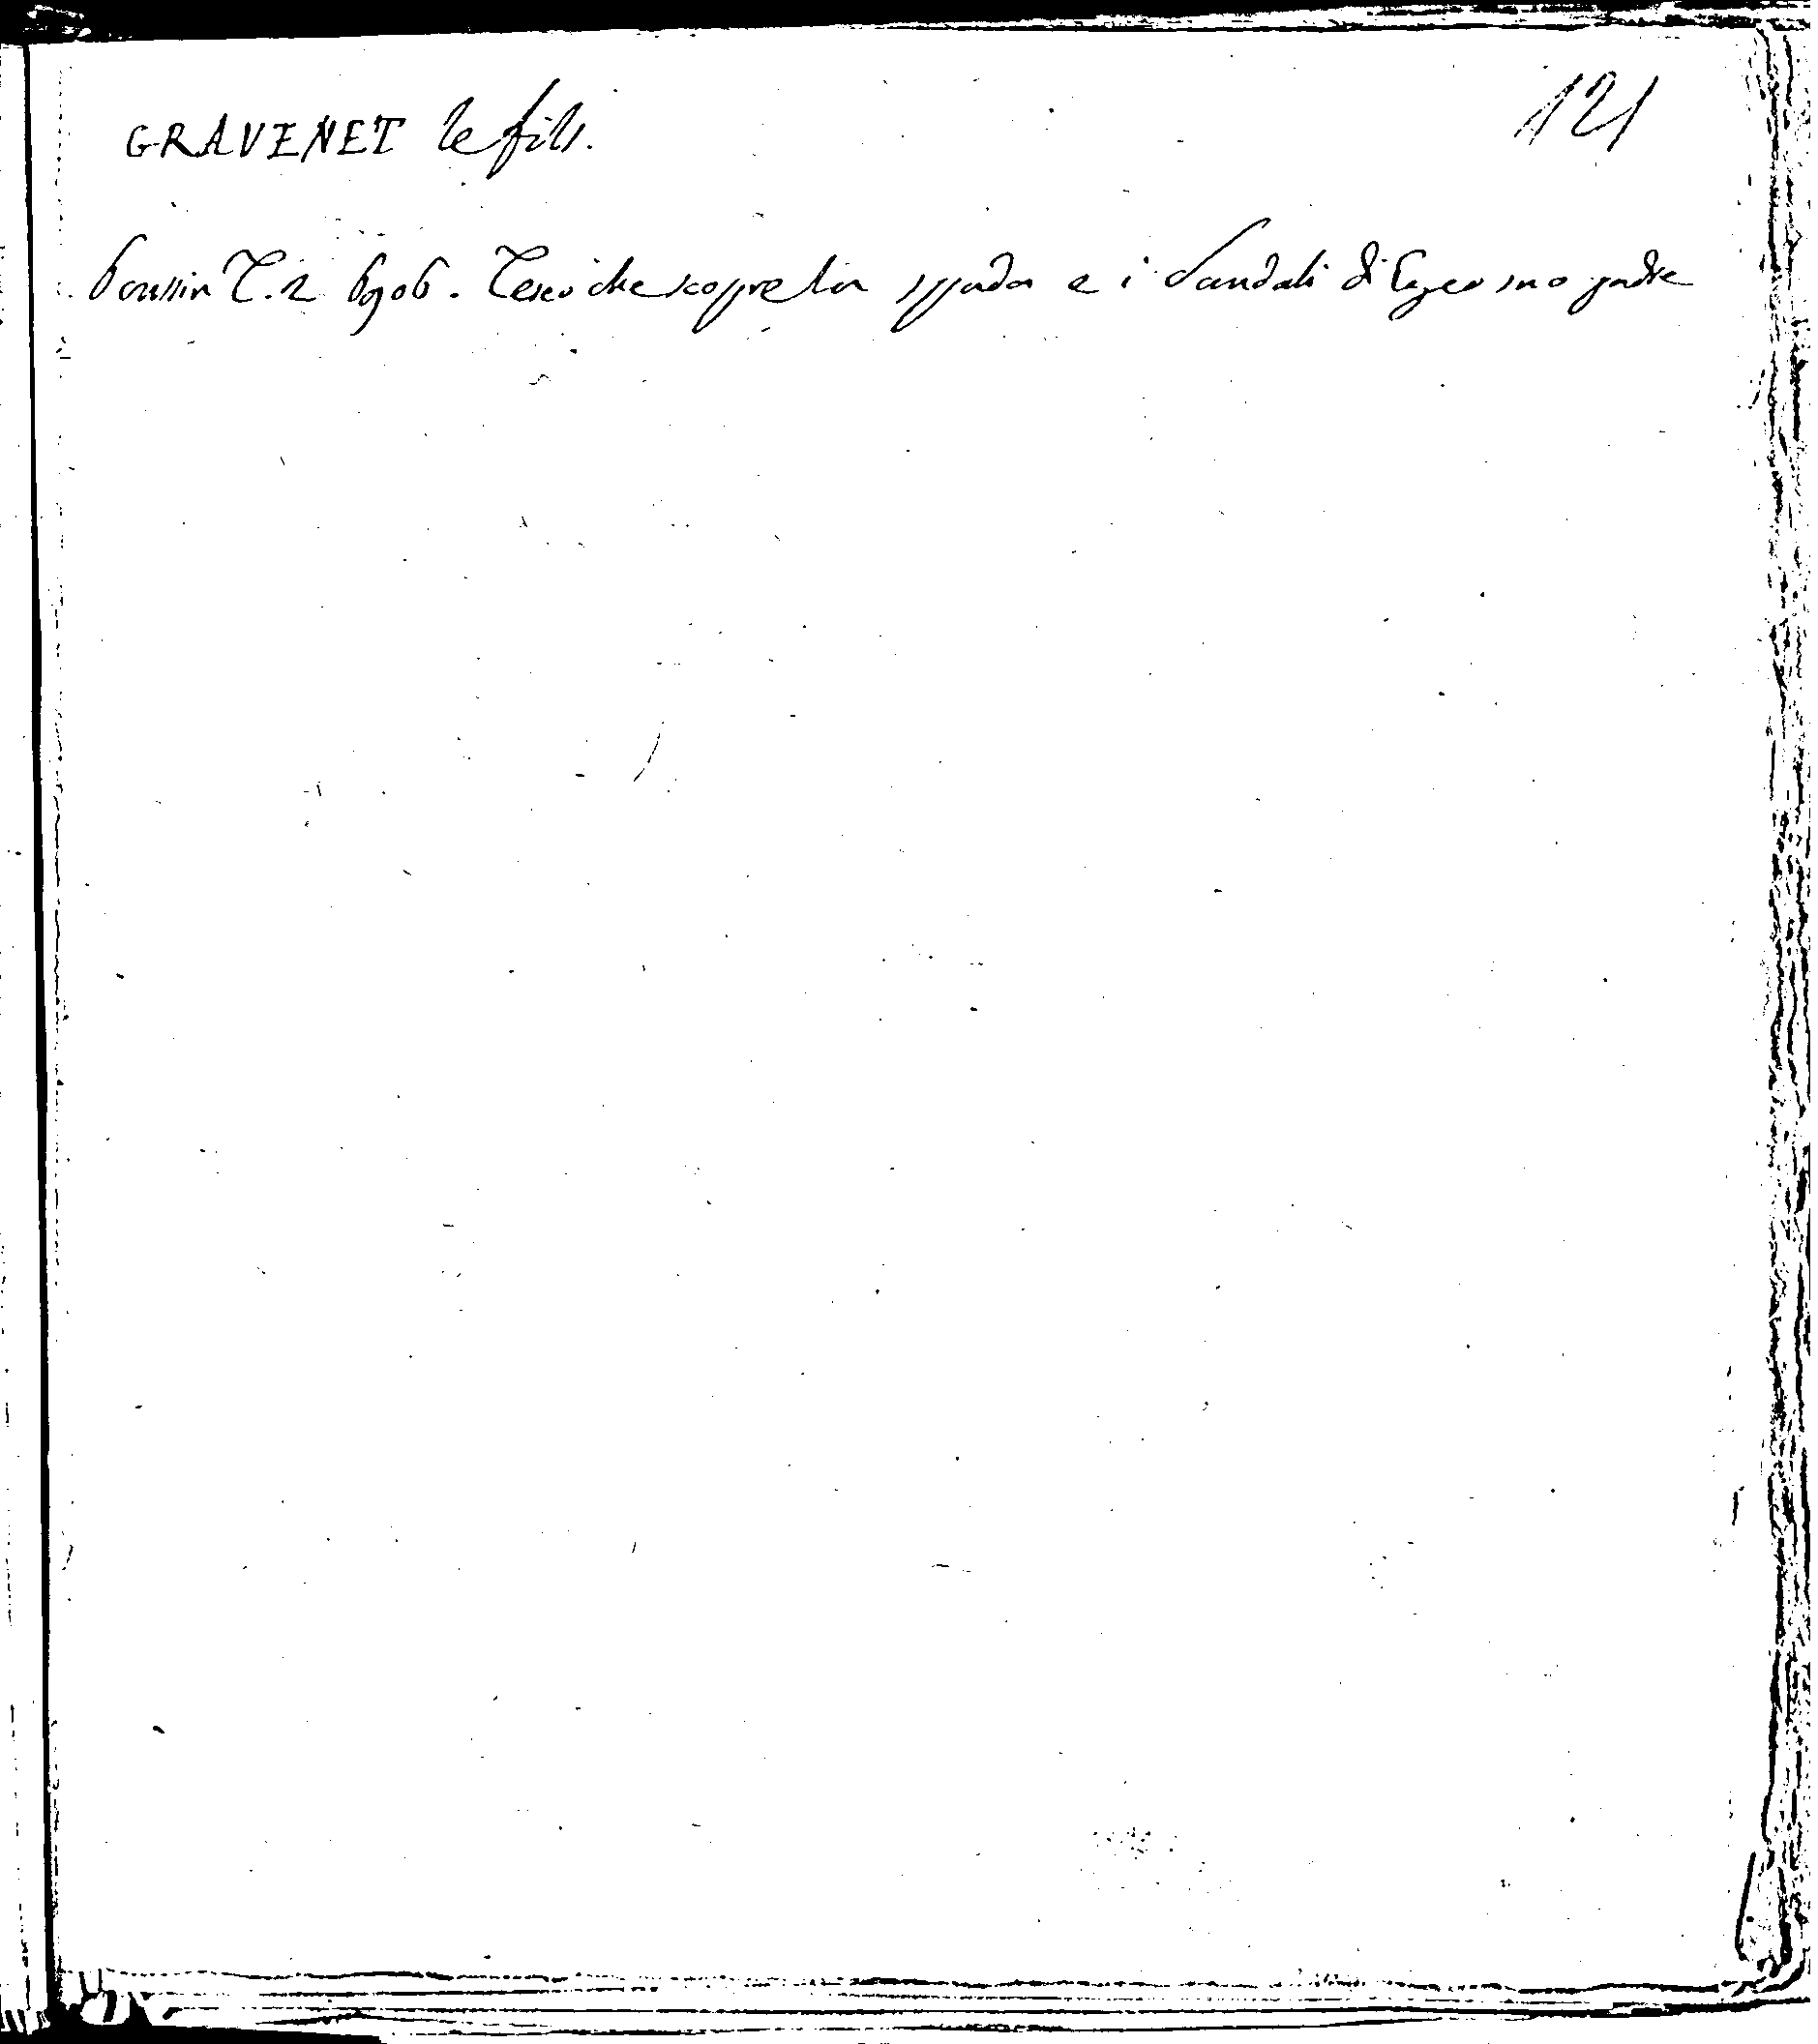 GRAVENET le fils. 121
Poussin T. 2 6906. Teseo che scopre la spada e i Sandali di Egeo suo padre